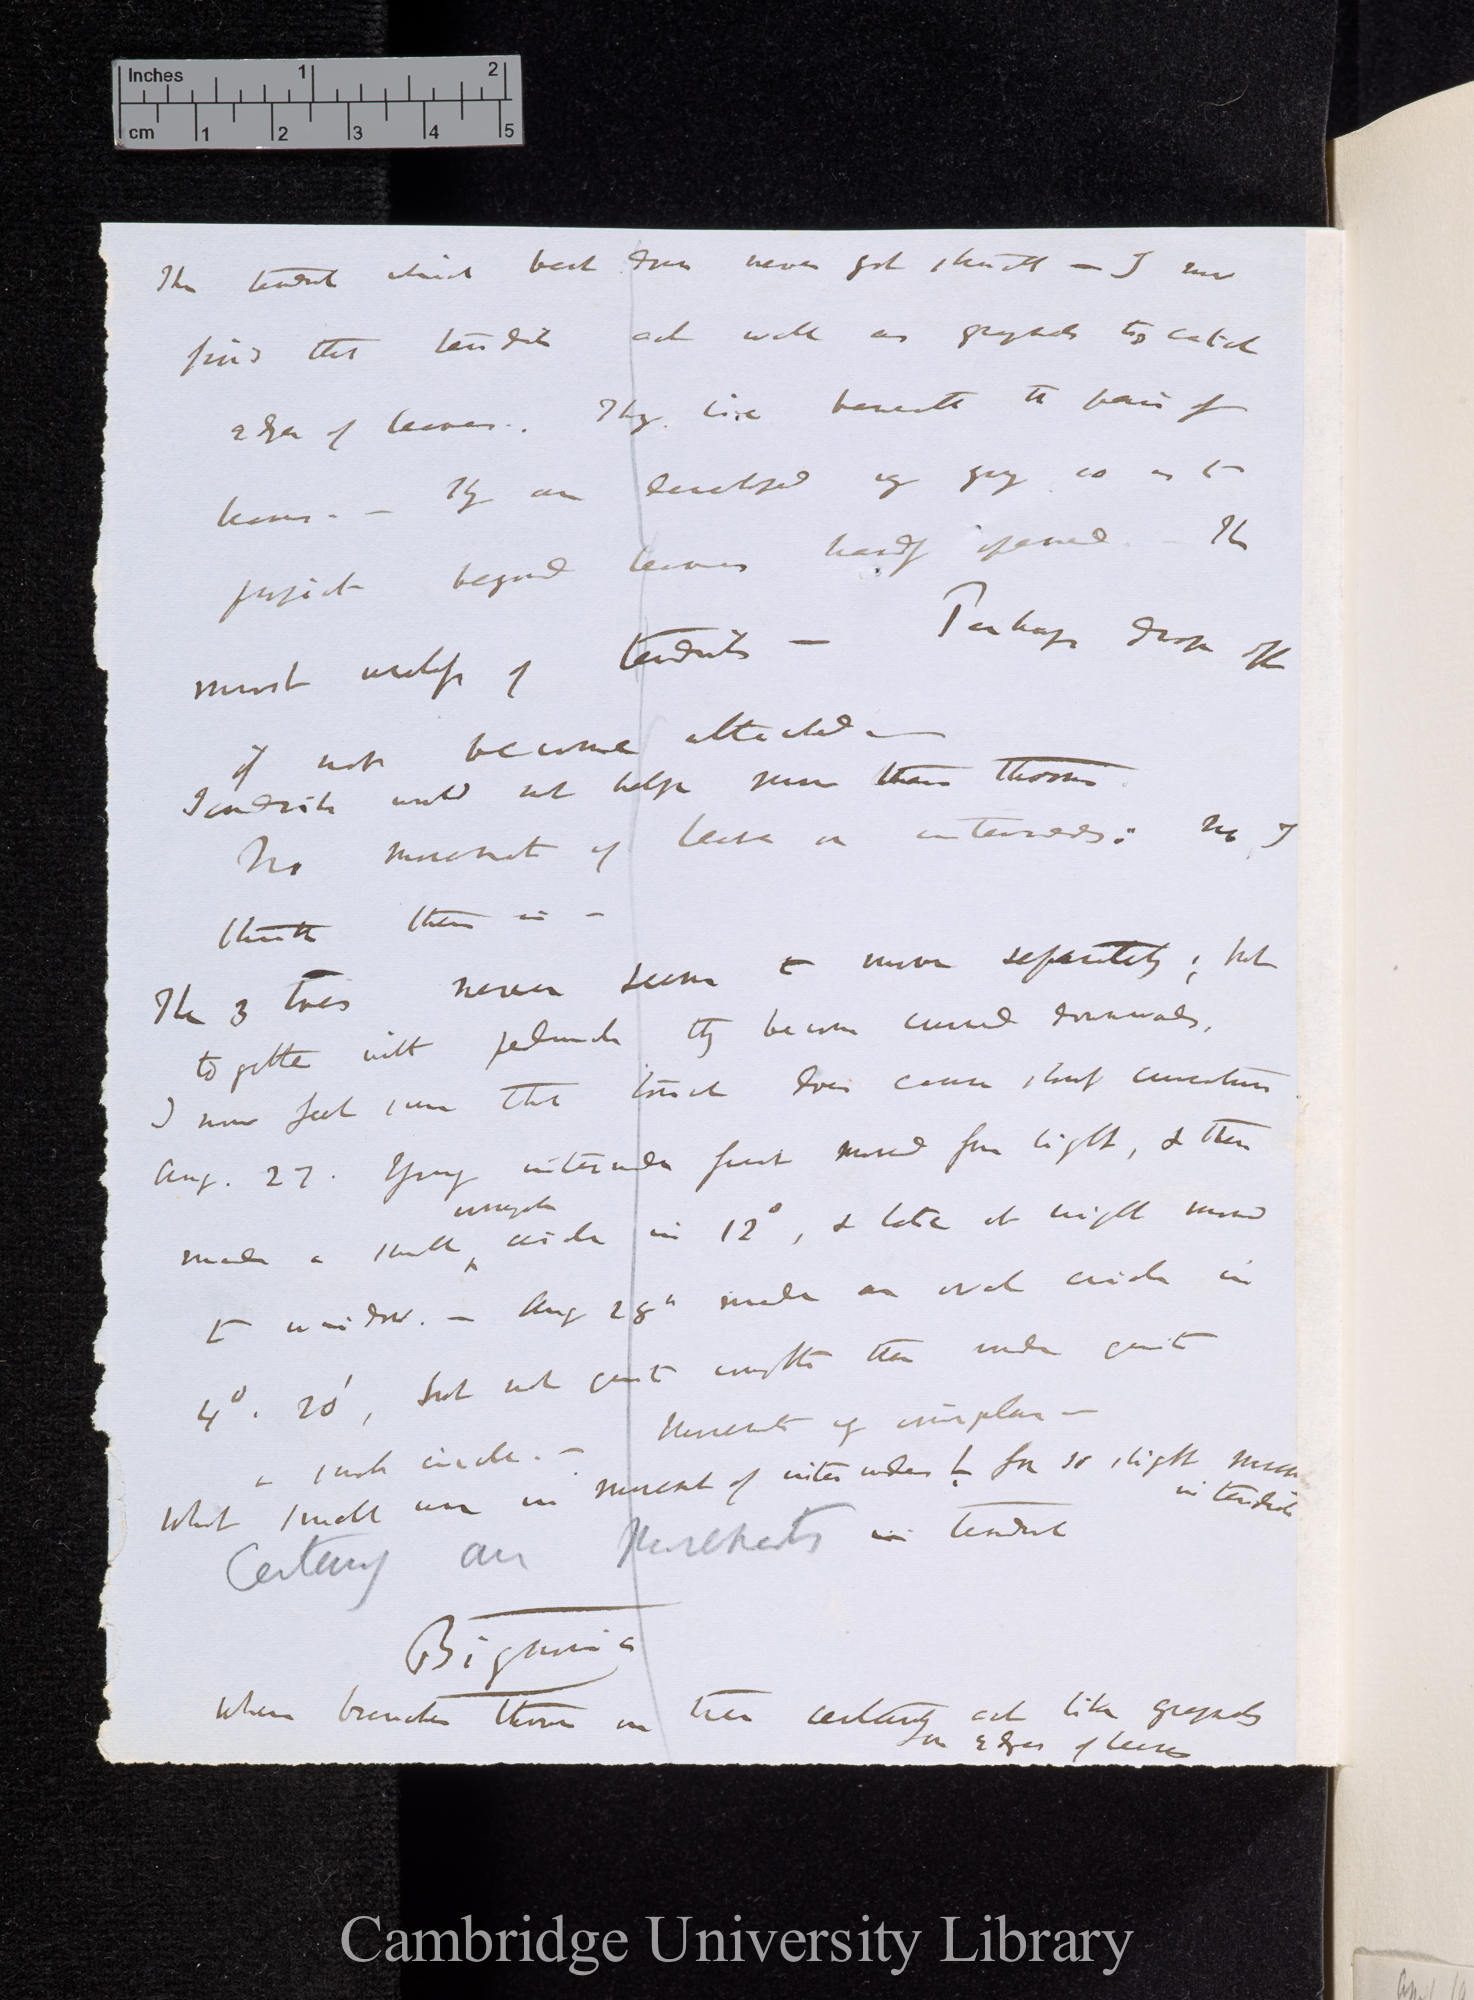 Inches 1 2
cm 1 2 3 4 5
The tendril which bent down never got straight — I now
find that tendrils act well as grapnels to catch
edges of leaves. They lie beneath the pair of
leaves. — They are developed very young so as to
project beyond leaves hardly opened. — The
most useless of tendrils — Perhaps drops off
if not become attached —
Tendrils would not help more than thorns
No movement of leaves or internodes: No I
think there is —
The 3 toes never seem to move separately; but
together with peduncle they become curved downwards.
I now feel sure that touch does cause slight curvature
Aug. 27. Young internode first moved from light, & then
complete
made a small circle in 12°, & late at night moved
to window. — Aug 28th made an oval circle in
4°. 20', but not quite complete then made quite
a small circle. — Movements very irregular —
What small use in movement of internodes! for so slight movement
in tendrils
Certainly are Movements in tendril
Bignonia
When branches thrown on tree certainly act like grapnels
for edges of leaves
Cambridge University Library